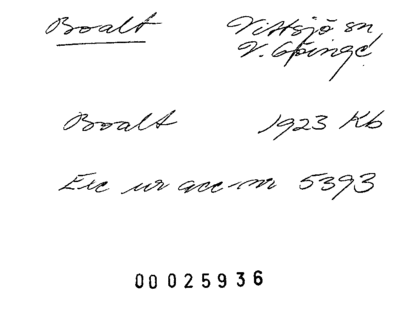 Boalt Vittsjö sn
V. Göinge
Boalt 1923 Kb
Exc ur acc-nr 5393
00025936